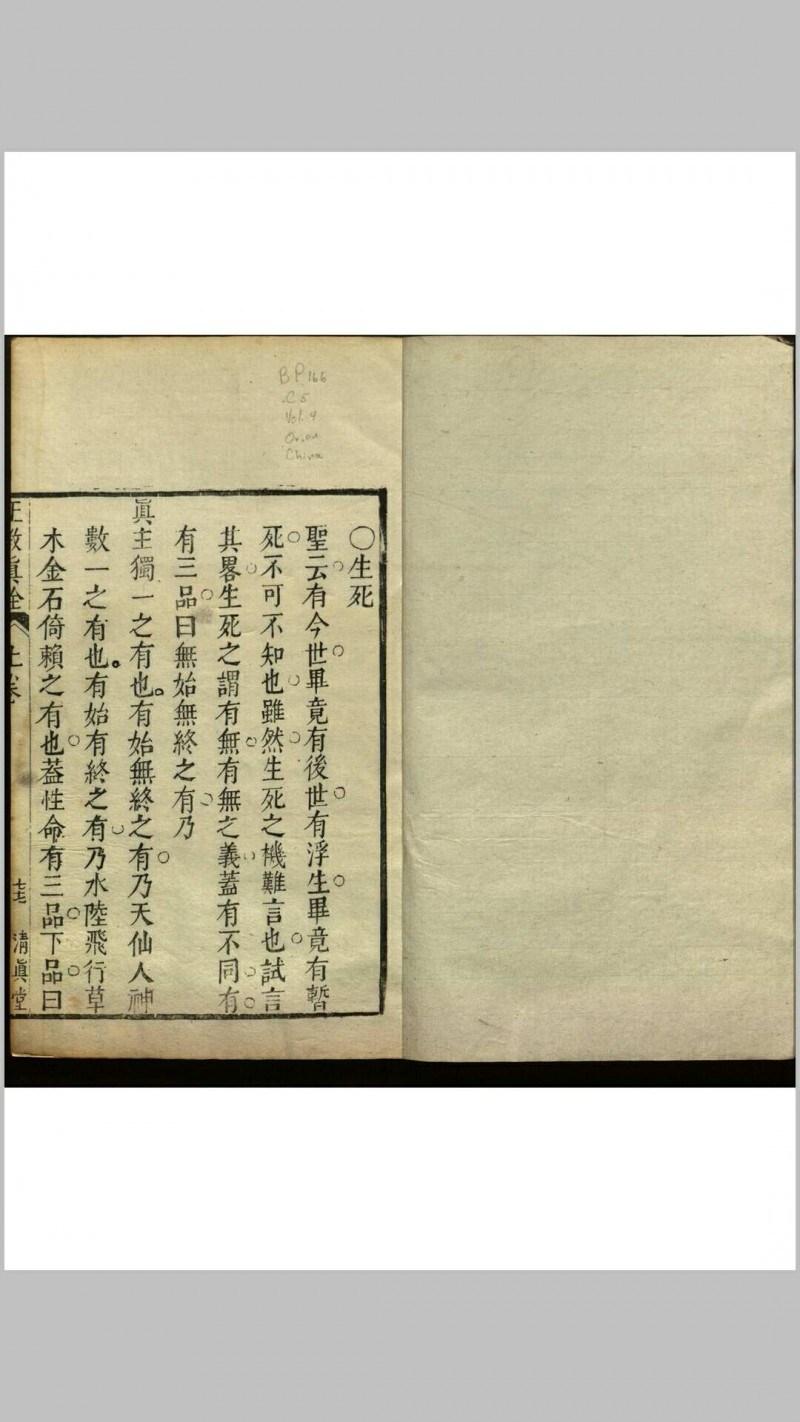 BP166
.C5
Vol. 4
Orien
China
〇生死
聖云有今世畢竟有後世有浮生畢竟有暫
死不可不知也雖然生死之機難言也試言
其畧生死之謂有無有無之義蓋有不同有
有三品曰無始無終之有乃
眞主獨一之有也有始無終之有乃天仙人神
數一之有也有始有終之有乃水陸飛行草
木金石倚賴之有也葢性命有三品下品曰
正敎眞詮 上卷 清眞堂